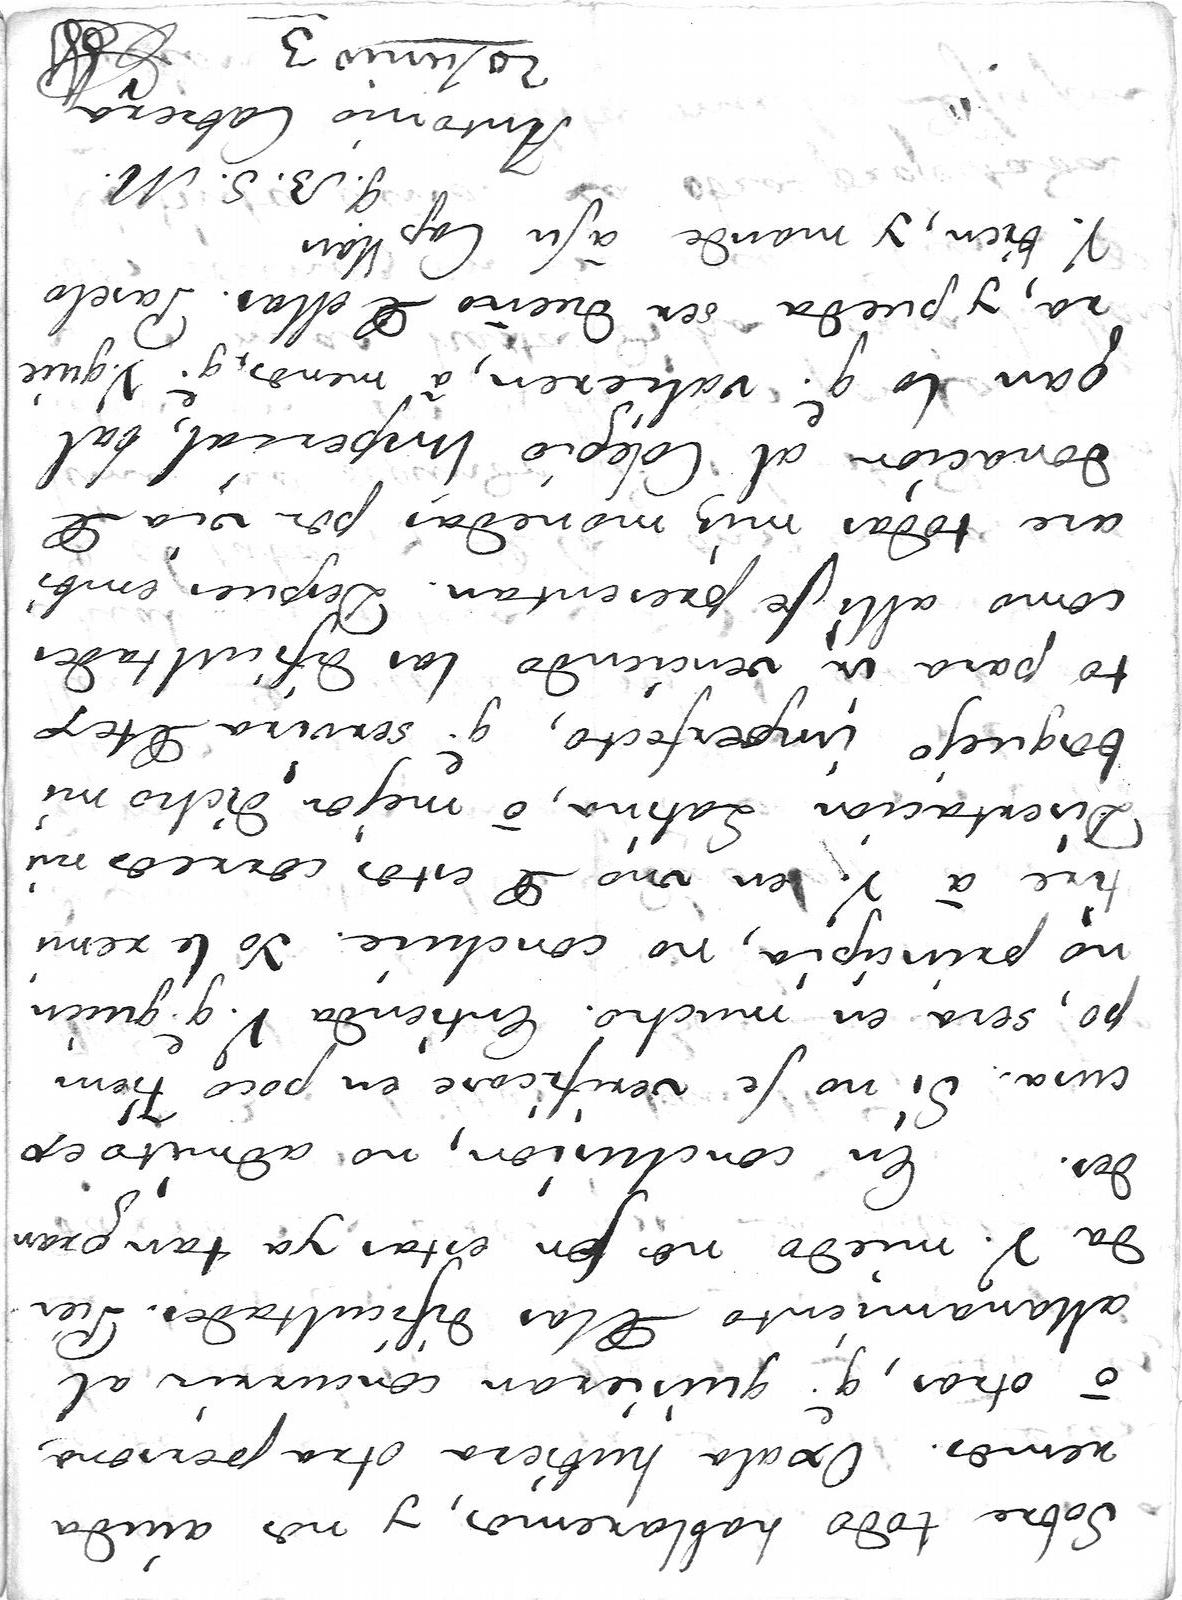 Sobre todo hablaremos, y nos aiuda
remos. Oxala hubiera otra persona,
ō otras, q.ᵉ quisieran concurrir al
allanamiento Elas dificultades. Pier
da V. miedo no son estas ya tan gran
des. En conclusion, no admito ex
cusa. Si no se verificare en poco tiem
po, sera en mucho. Entienda V. q.ᵉ quien
no principia, no concluie. Yo le remi
tire ā V. en uno E estos correos mi
Disertacion Latina, ō mejor dicho mi
bosquejo imperfecto, q.ᵉ servira Etex
to para ir venciendo las dificultades
como alli se presentan. Despues embi
are todas mis monedas por via E
donacion al Colegio Imperial, bal
gan lo q.ᵉ valieren, ā menos, q.ᵉ V. quie
ra, y pueda ser dueño E ellas. Paselo
V. bien, y mande ā su Cap.llan
q. B. S. M.
Antonio Cabrera
20 Junio 3